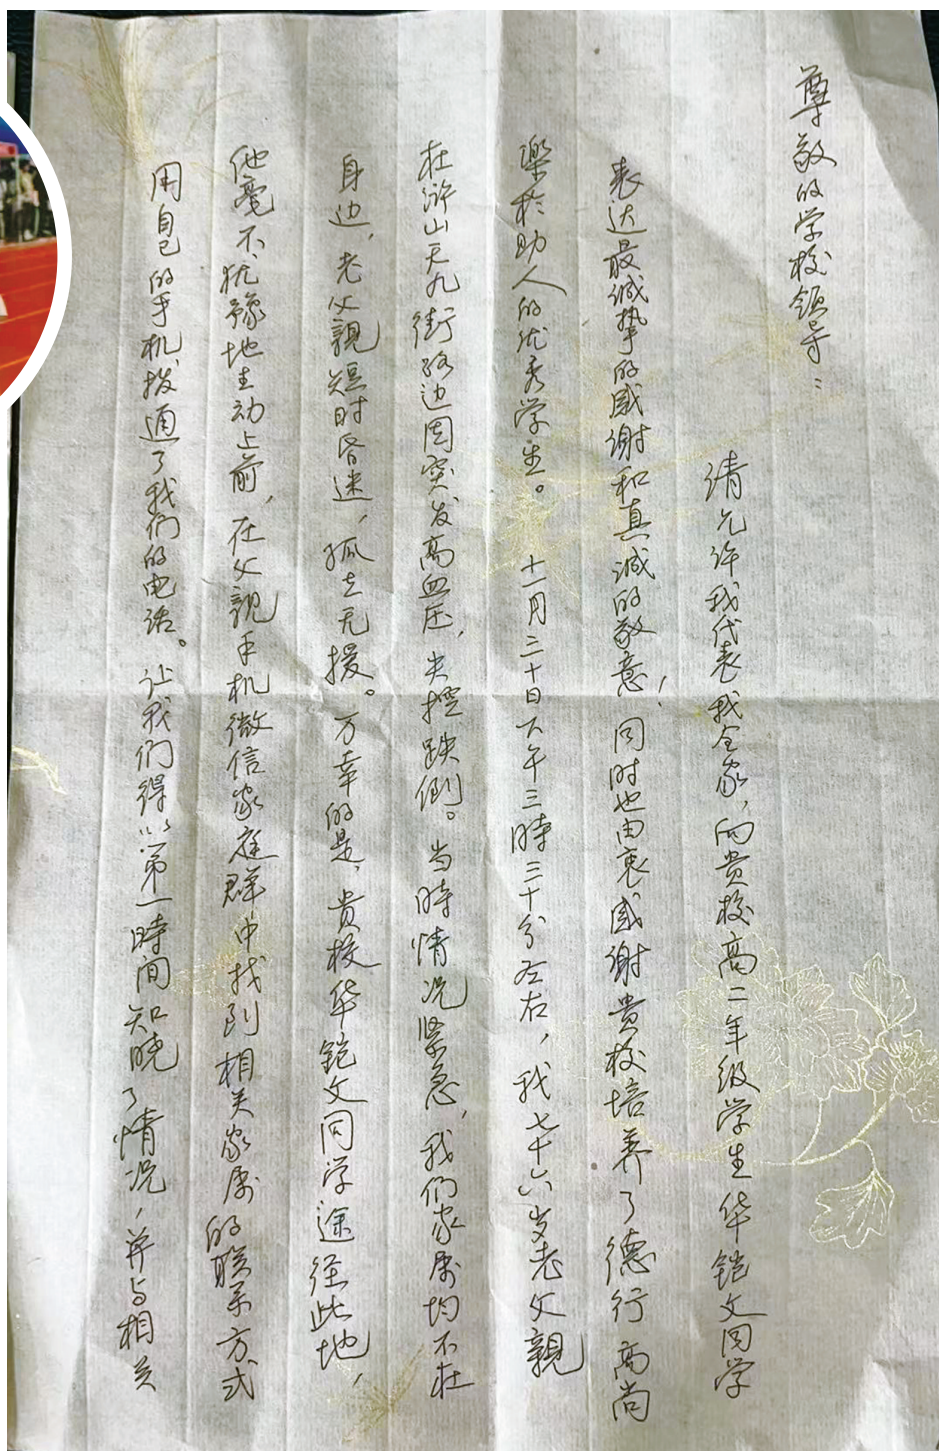 尊敬的学校领导：
请允许我代表我全家，向贵校高二年级学生华铠文同学
表达最诚挚的感谢和真诚的敬意！同时也由衷感谢贵校培养了德行高尚
樂於助人的优秀学生。十一月二十日下午三時三十分左右，我七十六岁老父親
在浒山天九街路边因突发高血压，失控跌倒。当時情况紧急，我们家属均不在
身边，老父親短时昏迷，孤立无援。万幸的是，贵校华铠文同学途径此地，
他毫不犹豫地主动上前，在父親手机微信家庭群中找到相关家属的联系方式
用自己的手机，拨通了我们的电话。让我们得以第一時间知晓了情况，并与相关